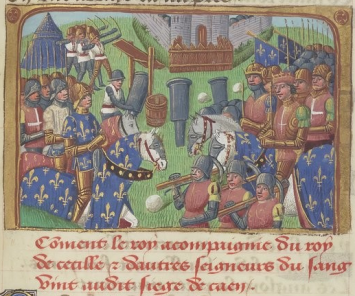 Coment le roy acompaigne du roy
de cecille & dautres seigneurs du sang
vint audit siege de caen